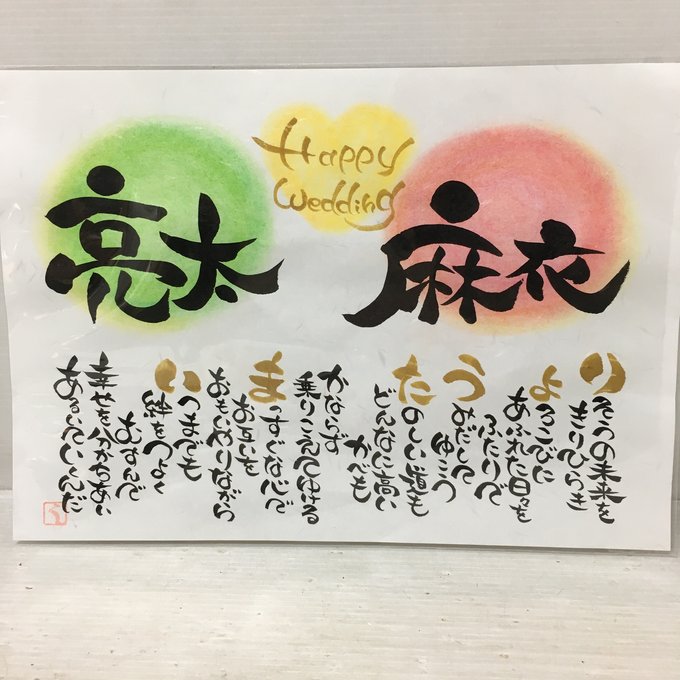 Happy
Wedding
亮太
麻衣
りそうの未来を
きりひらき
よろこびに
あふれた日々を
ふたりで
うみだして
ゆこう
たのしい道も
どんなに高い
かべも
かならず
乗りこえてゆける
まっすぐな心で
お互いを
おもいやりながら
いつまでも
絆をつよく
むすんで
幸せを分かちあい
あるいていくんだ